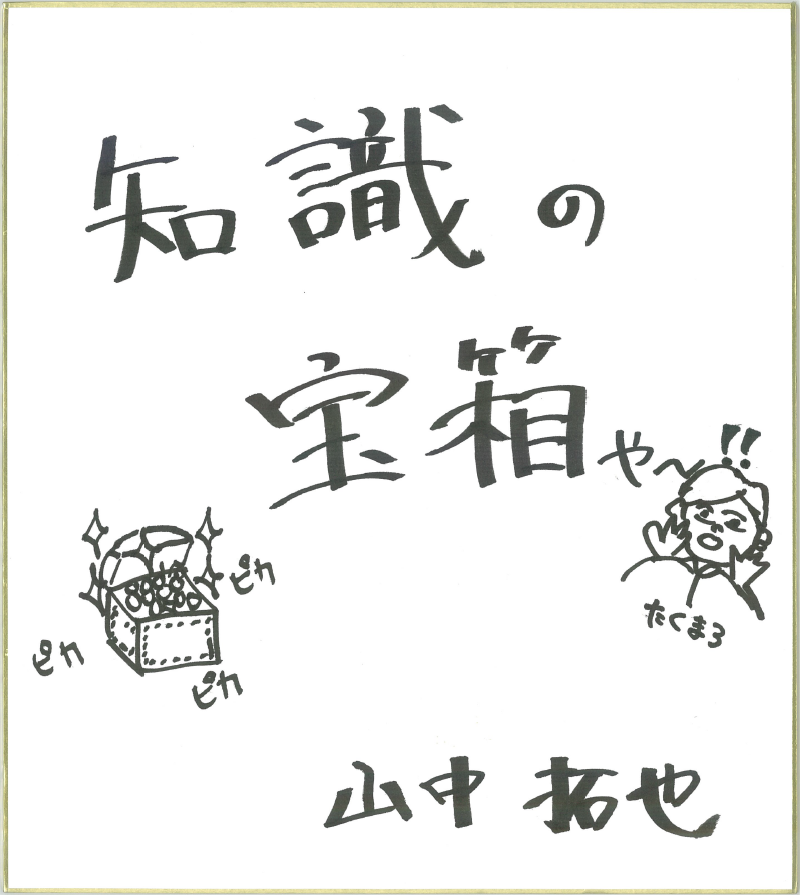 知識の
宝箱や〜!!
ピカ
ピカ
ピカ
たくまろ
山中拓也